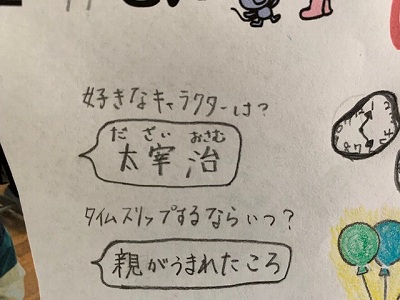 好きなキャラクターは?
だ ざい おさむ
太宰 治
タイムスリップするならいつ?
親がうまれたころ